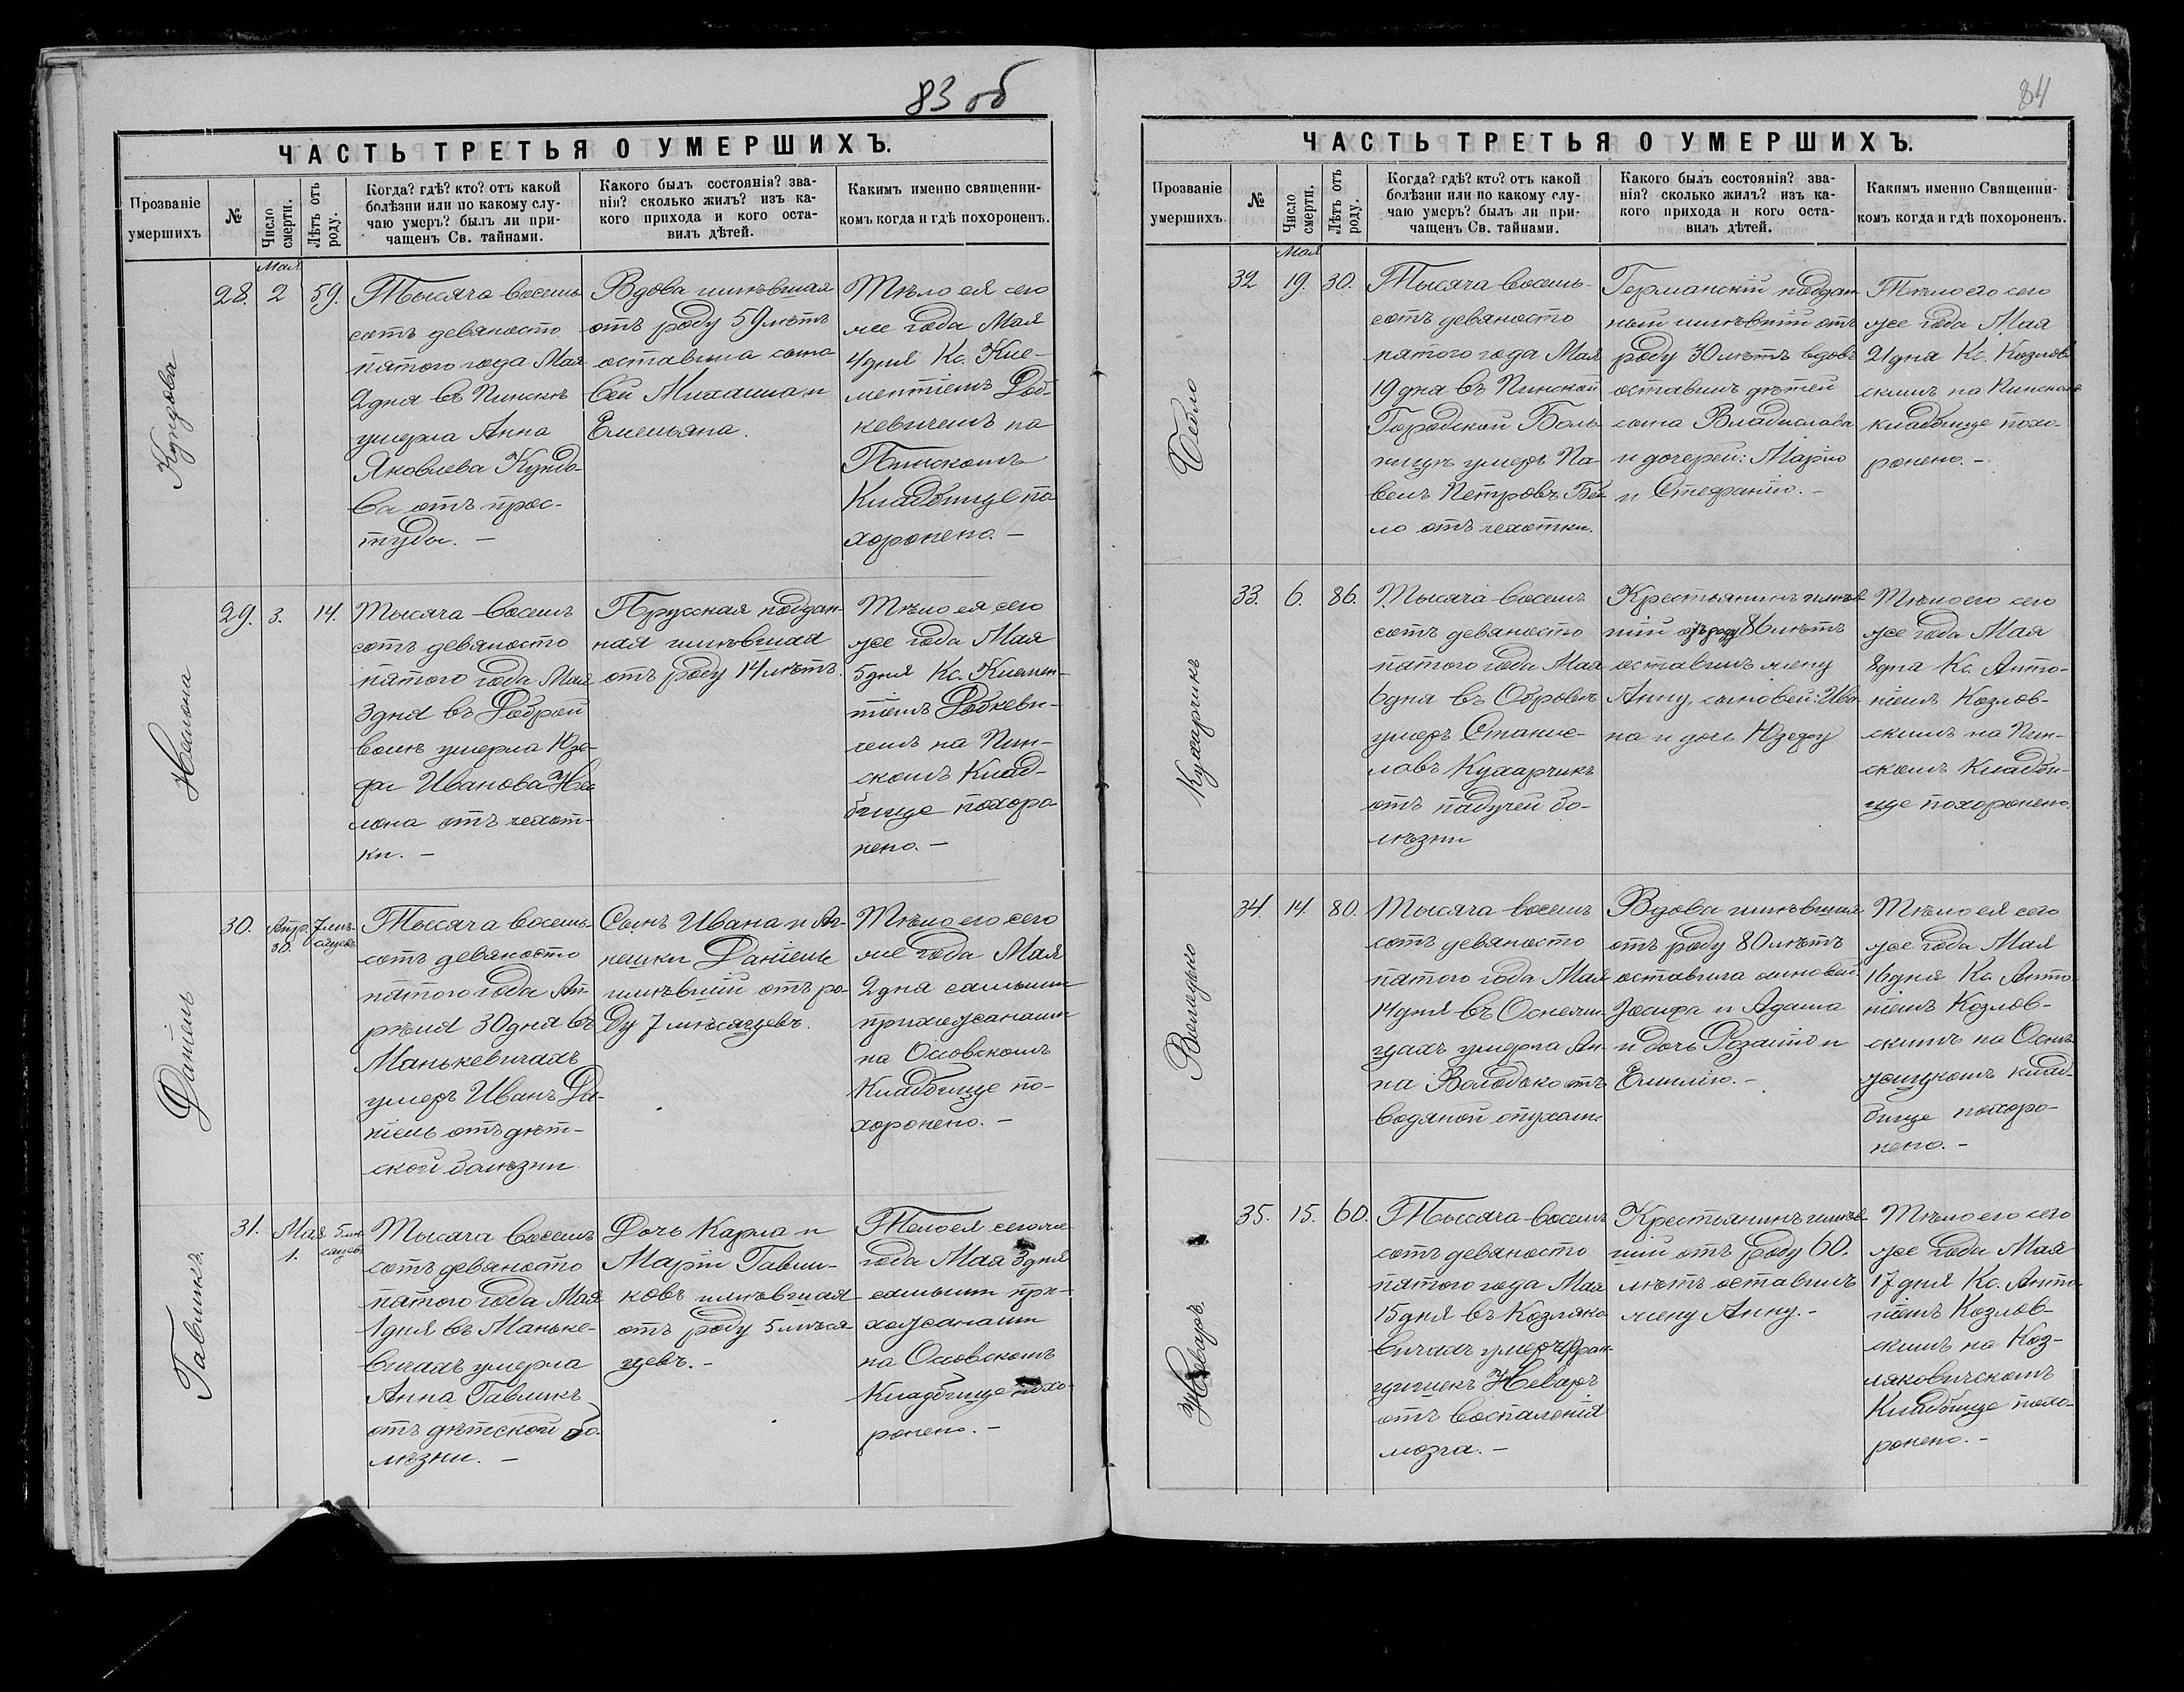 83 об
ЧАСТЬ ТРЕТЬЯ О УМЕРШИХЪ.
Прозваніе умершихъ
№
Число смерти.
Лѣтъ отъ роду.
Когда? гдѣ? кто? отъ какой
болѣзни или по какому слу-
чаю умеръ? былъ ли при-
чащенъ Св. тайнами.
Какого былъ состоянія? зва-
нія? сколько жилъ? изъ ка-
кого прихода и кого оста-
вилъ дѣтей.
Какимъ именно священни-
комъ когда и гдѣ похороненъ.
Кундова
28.
Мая
2
59.
Тысяча восемь
сотъ девяносто
пятого года Мая
2 дня въ Пинскѣ
умерла Анна
Яковлева Кундо-
ва отъ прос-
туды. –
Вдова имѣвшая
отъ роду 59 лѣтъ
оставила сына
вей Михаила и
Емельяна.
Тѣло ея сего
же года Мая
4 дня Кс. Кле-
ментіемъ Доб-
кевичемъ на
Пинскомъ
Кладбище по
хоронено. –
29.
3.
14.
Тысяча восемь
сотъ девяносто
пятого года Мая
3 дня въ Доброй
волѣ умерла Юзе-
фа Иванова
лона отъ чехот-
ки. –
Прусская поддан-
ная имѣвшая
отъ роду 14 лѣтъ.
Тѣло ея сего
же года Мая
5 дня Кс. Климен-
тіемъ Добкеви-
чемъ на Пин-
скомъ Клад-
бище похоро
нено. –
Даніель
30.
Апр. 30.
7 мѣ-
сяцевъ
Тысяча восемь-
сотъ девяносто
пятого года Ап-
рѣля 30 дня въ
Манькевичахъ
умеръ Иванъ Да-
ніель отъ дѣт-
ской болѣзни
Сынъ Ивана и Аг-
нешки Даніель
имѣвшій отъ ро-
ду 7 мѣсяцевъ.
Тѣло его сего
же года Мая
2 дня самыми
прихожанами
на Осовскомъ
Кладбище по-
хоронено. –
Гавликъ
31.
Мая 1.
5 мѣ
сяцевъ
Тысяча восемь
сотъ девяносто
пятого года Мая
1 дня въ Маньке-
вичахъ умерла
Анна Гавликъ
отъ дѣтской бо-
лѣзни. –
Дочь Карла и
Маріи Гавли-
ковъ имѣвшая
отъ роду 5 мѣся-
цевъ. –
Тело ея сего же
года Мая 3 дня
самыми при-
хожанами
на Осовскомъ
Кладбище похо-
ронено. –
84
ЧАСТЬ ТРЕТЬЯ О УМЕРШИХЪ.
Прозваніе умершихъ.
№
Число смерти.
Лѣтъ отъ роду.
Когда? гдѣ? кто? отъ какой
болѣзни или по какому слу-
чаю умеръ? былъ ли при-
чащенъ Св. тайнами.
Какого былъ состоянія? зва-
нія? сколько жилъ? изъ ка-
кого прихода и кого оста-
вилъ дѣтей.
Какимъ именно Священни-
комъ когда и гдѣ похороненъ.
32
Мая
19.
30.
Тысяча восемь-
сотъ девяносто
пятого года Мая
19 дня въ Пинской
Городской Боль-
ницѣ умеръ Па-
велъ Петровъ
ло отъ чехотки.
Германскій поддан
ный имѣвшій отъ
роду 30 лѣтъ вдовъ
оставилъ дѣтей
сына Владислава
и дочерей: Марію
и Стефанію. –
Тѣло его сего
же года Мая
21 дня Кс. Козлов
скимъ на Пинскомъ
кладбище похо-
ронено. –
Кухарчикъ
33.
6.
86.
Тысяча восемь
сотъ девяносто
пятого года Мая
6 дня въ Обровѣ
умеръ Станис-
лавъ Кухарчикъ
отъ падучей бо-
лѣзни
Крестьянинъ имѣв-
шій отъ роду 86 лѣтъ
оставилъ жену
Анну, сыновей: Ива-
на и дочь Юзефу
Тѣло его сего
же года Мая
8 дня Кс. Анто-
ніемъ Козлов-
скимъ на Пин-
скомъ Кладби-
ще похоронено.
Володько
34.
14.
80.
Тысяча восемь
сотъ девяносто
пятого года Мая
14 дня въ
цахъ умерла Ан-
на Володько отъ
водяной опухоли
Вдова имѣвшая
отъ роду 80 лѣтъ
оставила сыновей:
Іосифа и Адама
и дочь Розалію и
Емилію. –
Тѣло ея сего
же года Мая
16 дня Кс. Анто
ніемъ Козлов-
скимъ на
клад-
бище похоро-
нено. –
35.
15.
60.
Тысяча восемь
сотъ девяносто
пятого года Мая
15 дня въ Козляко
вичахъ умеръ Фран-
цишекъ
отъ воспаленія
мозга. –
Крестьянинъ имѣв
шій отъ роду 60.
лѣтъ оставилъ
жену Анну. –
Тѣло его сего
же года Мая
17 дня Кс. Анто
ніемъ Козлов-
скимъ на Коз-
ляковичскомъ
Кладбище похо-
ронено. –